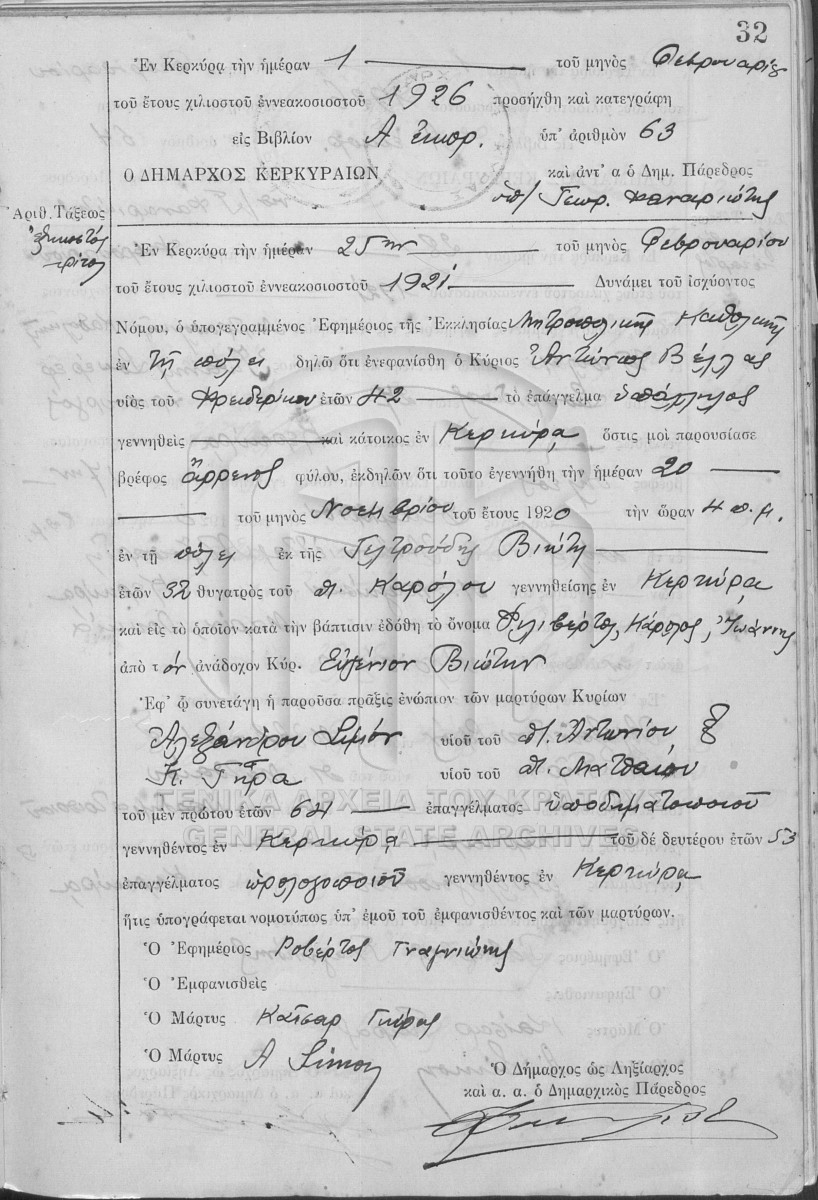 32
Ἐν Κερκύρᾳ τὴν ἡμέραν 1 τοῦ μηνὸς Φεβρουαρίου
τοῦ ἔτους χιλιοστοῦ ἐννεακοσιοστοῦ 1926 προσήχθη καὶ κατεγράφη
εἰς Βιβλίον Α ἐκπρ. ὑπ' ἀριθμὸν 63
Ο ΔΗΜΑΡΧΟΣ ΚΕΡΚΥΡΑΙΩΝ καὶ ἀντ' α ὁ Δημ. Πάρεδρος
Γεωρ. Καναριώτης
Ἀριθ. Τάξεως
ἑξηκοστὸν
τρίτον
Ἐν Κερκύρᾳ τὴν ἡμέραν 25ην τοῦ μηνὸς Φεβρουαρίου
τοῦ ἔτους χιλιοστοῦ ἐννεακοσιοστοῦ 1921 Δυνάμει τοῦ ἰσχύοντος
Νόμου, ὁ ὑπογεγραμμένος Ἐφημέριος τῆς Ἐκκλησίας Μητροπολιτικῆς Καθολικῆς
ἐν τῇ πόλει δηλῶ ὅτι ἐνεφανίσθη ὁ Κύριος Ἀντώνιος Βέλλας
υἱὸς τοῦ Φρειδερίκου ἐτῶν 42 τὸ ἐπάγγελμα ὑπάλληλος
γεννηθεὶς καὶ κάτοικος ἐν Κερκύρᾳ ὅστις μοὶ παρουσίασε
βρέφος ἄρρενος φύλου, ἐκδηλῶν ὅτι τοῦτο ἐγεννήθη τὴν ἡμέραν 20
τοῦ μηνὸς Νοεμβρίου τοῦ ἔτους 1920 τὴν ὥραν 4 π.μ.
ἐν τῇ πόλει ἐκ τῆς Γελτρούδης Βιώτη
ἐτῶν 32 θυγατρὸς τοῦ π. Καρόλου γεννηθείσης ἐν Κερκύρᾳ
καὶ εἰς τὸ ὁποῖον κατὰ τὴν βάπτισιν ἐδόθη τὸ ὄνομα Φιλιβέρτος, Κάρολος, Ἰωάννης
ἀπὸ τὸν ἀνάδοχον Κύρ. Εὐγένιον Βιώτην
Ἐφ' ᾧ συνετάγη ἡ παροῦσα πρᾶξις ἐνώπιον τῶν μαρτύρων Κυρίων
Ἀλεξάνδρου Σιμόν υἱοῦ τοῦ π. Ἀντωνίου
Κ. Γκύρα υἱοῦ τοῦ π. Ματθαίου
ΓΕΝΙΚΑ ΑΡΧΕΙΑ ΤΟΥ ΚΡΑΤΟΥΣ
τοῦ μὲν πρώτου ἐτῶν 64 ἐπαγγέλματος ὑποδηματοποιοῦ
GENERAL STATE ARCHIVES
γεννηθέντος ἐν Κερκύρᾳ τοῦ δὲ δευτέρου ἐτῶν 53
ἐπαγγέλματος ὡρολογοποιοῦ γεννηθέντος ἐν Κερκύρᾳ
ἥτις ὑπογράφεται νομοτύπως ὑπ' ἐμοῦ τοῦ ἐμφανισθέντος καὶ τῶν μαρτύρων.
Ὁ Ἐφημέριος Ροβέρτος
Ὁ Ἐμφανισθεὶς
Ὁ Μάρτυς Καῖσαρ Γκύρας
Ὁ Μάρτυς Α Simon
Ὁ Δήμαρχος ὡς Ληξίαρχος
καὶ α. α. ὁ Δημαρχικὸς Πάρεδρος